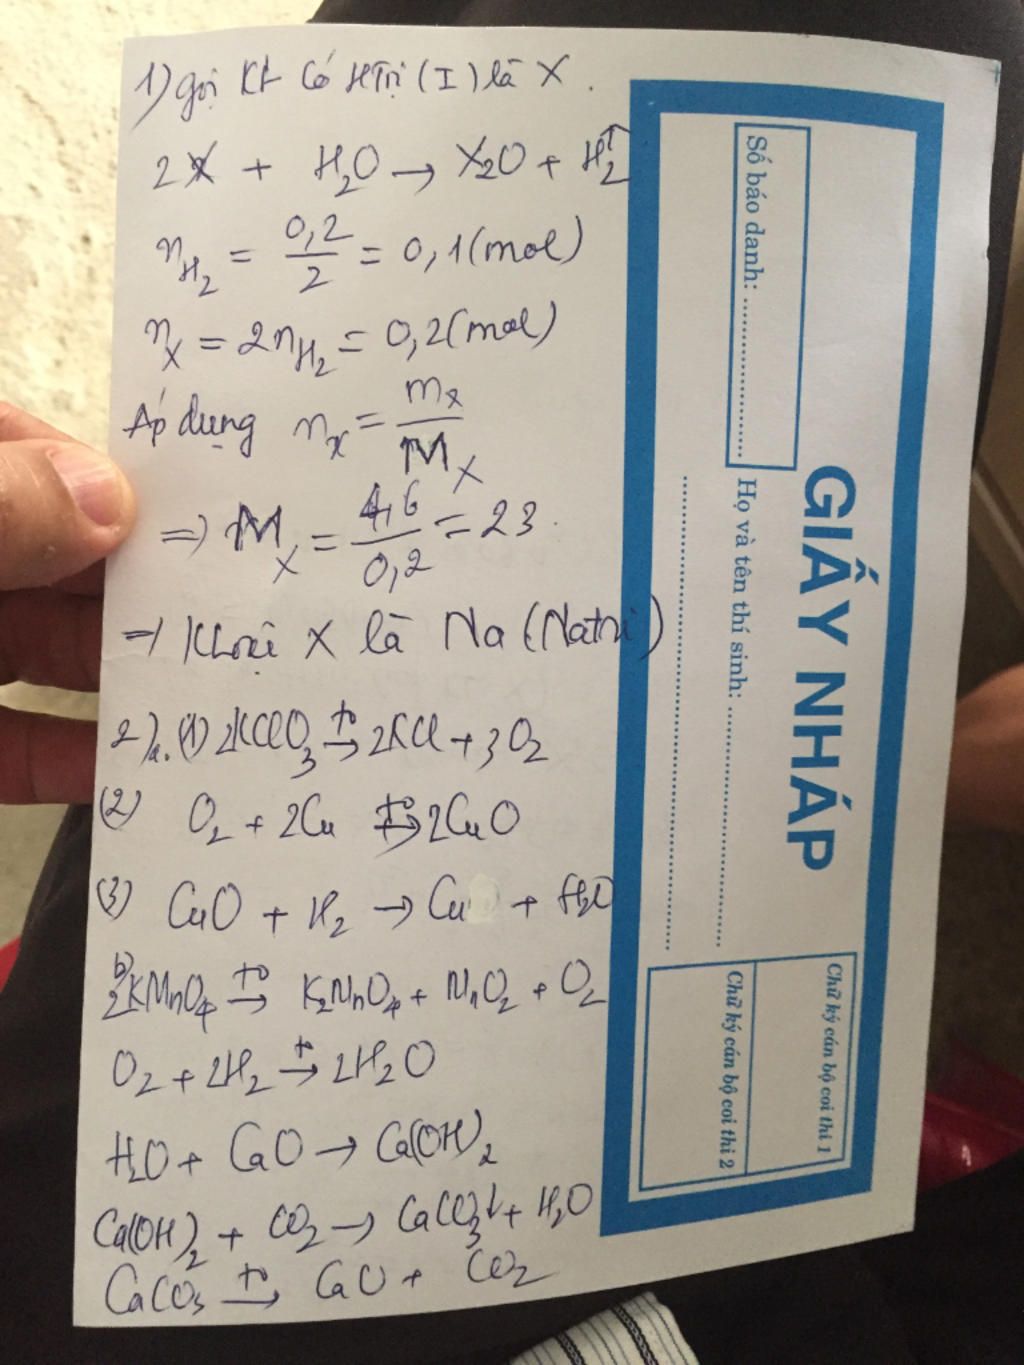 1) Gọi KL có HTrị (I) là X.
2X + H₂O → X₂O + H₂↑
n_H₂ = 0,2/2 = 0,1 (mol)
n_X = 2n_H₂ = 0,2 (mol)
Áp dụng n_X = m_X/M_X
=> M_X = 4,6/0,2 = 23.
=> Kloại X là Na (Natri)
2) a. (1) 2KClO₃ t°→ 2KCl + 3O₂
(2) O₂ + 2Cu t°→ 2CuO
(3) CuO + H₂ → Cu + H₂O
b) 2KMnO₄ t°→ K₂MnO₄ + MnO₂ + O₂
O₂ + 2H₂ t°→ 2H₂O
H₂O + CaO → Ca(OH)₂
Ca(OH)₂ + CO₂ → CaCO₃↓ + H₂O
CaCO₃ t°→ CaO + CO₂
GIẤY NHÁP
Số báo danh: ........................
Họ và tên thí sinh: ........................
Chữ ký cán bộ coi thi 1
Chữ ký cán bộ coi thi 2